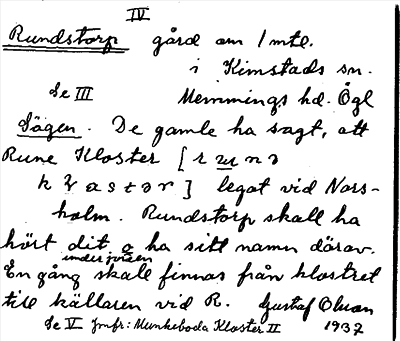 IV
Rundstorp gård om 1 mtl.
i Kimstads sn.
Se III Memmings hd. Ögl
Sägen. De gamle ha sagt, att
Rune Kloster [r u n ə
k ɫ a s t ə r] legat vid Nors-
holm. Rundstorp skall ha
hört dit o ha sitt namn därav.
underjorden
En gång skall finnas från klostret
till källaren vid R. Gustaf Olson
Se V Jmfr: Munkeboda Kloster II 1937